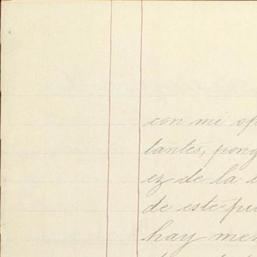 con mi op
lantes, pong
ez de la e
de este pu
hay men